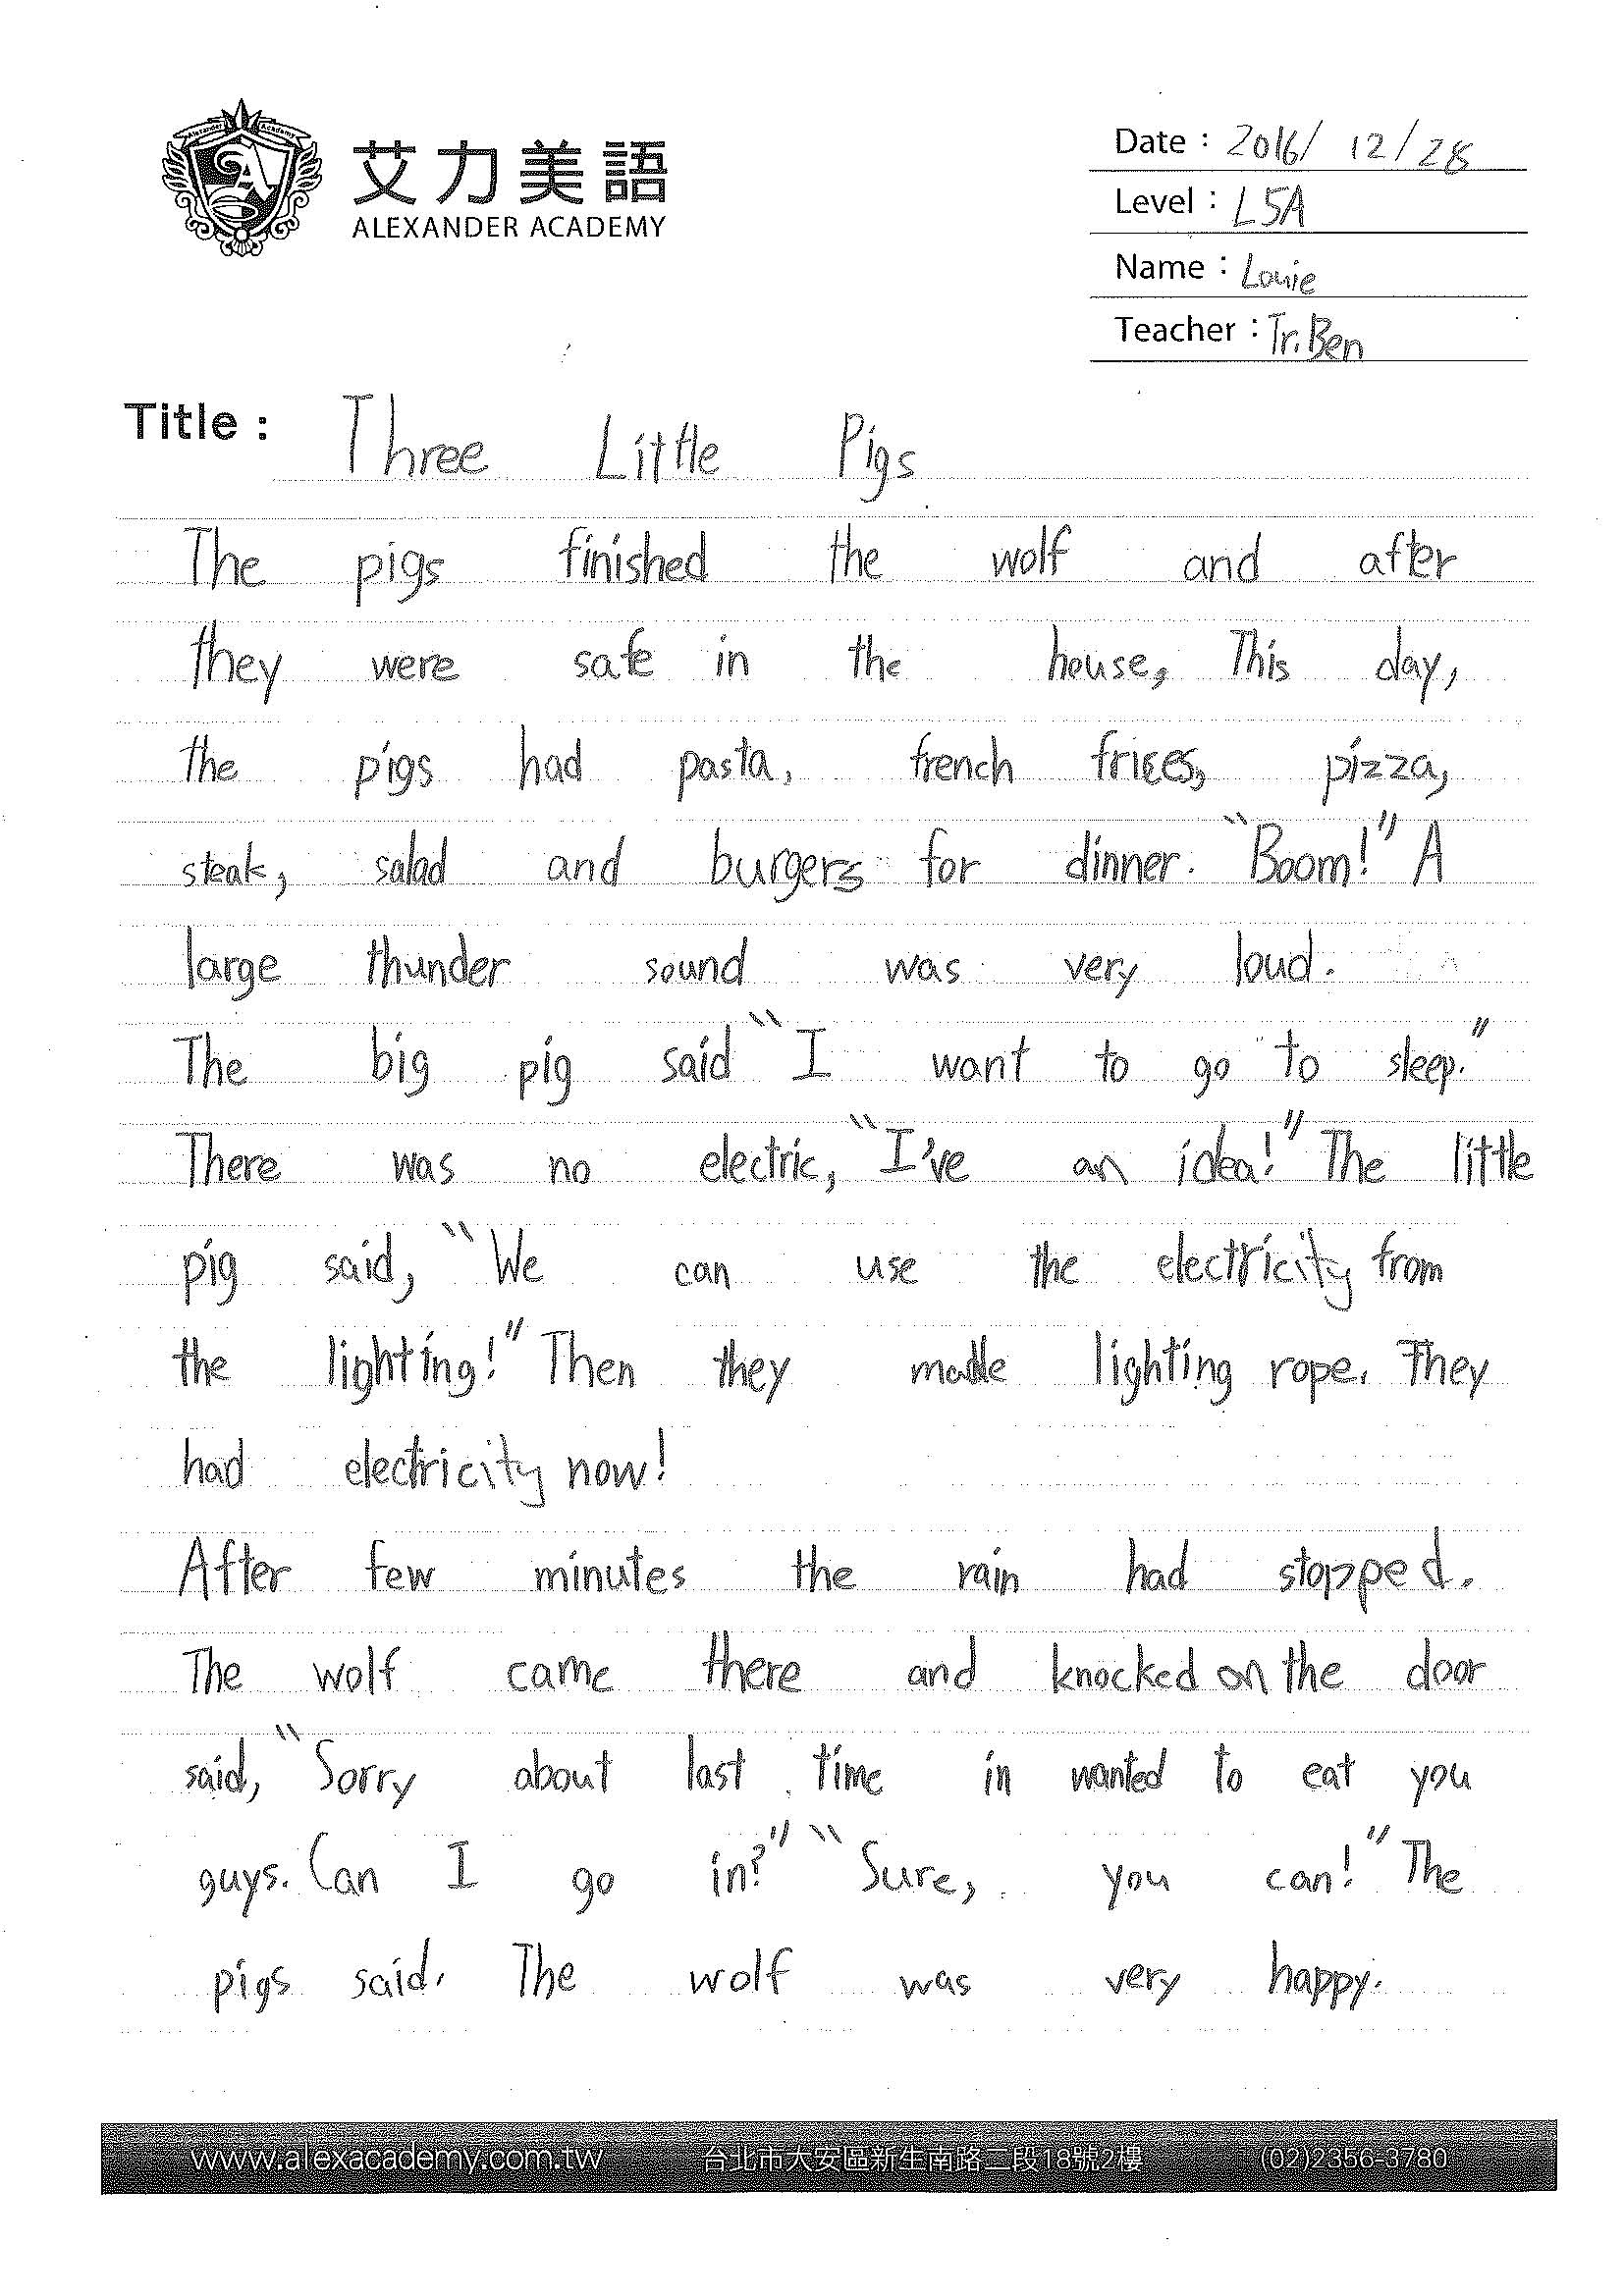 Alexander Academy
艾力美語
ALEXANDER ACADEMY
Date : 2016/ 12/28
Level : L5A
Name : Louie
Teacher : Tr. Ben
Title : Three Little Pigs
The pigs finished the wolf and after
they were safe in the house, This day,
the pigs had pasta, french fries, pizza,
steak, salad and burgers for dinner. "Boom!" A
large thunder sound was very loud.
The big pig said "I want to go to sleep."
There was no electric, "I've an idea!" The little
pig said, "We can use the electricity from
the lighting!" Then they made lighting rope. They
had electricity now!
After few minutes the rain had stopped.
The wolf came there and knocked on the door
said, "Sorry about last time in wanted to eat you
guys. Can I go in?" "Sure, you can!" The
pigs said. The wolf was very happy.
www.alexacademy.com.tw 台北市大安區新生南路二段18號2樓 (02)2356-3780